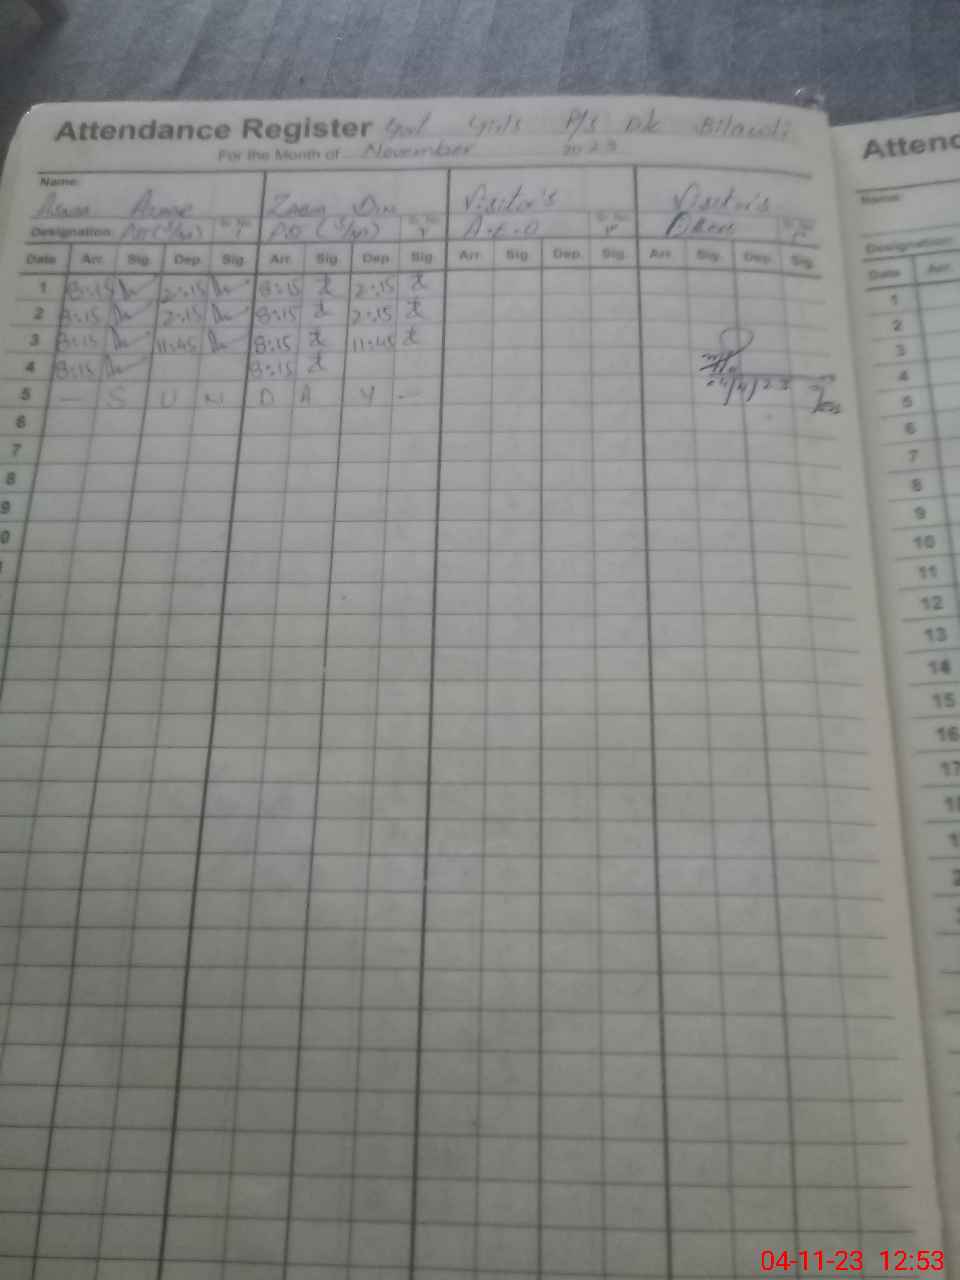 Attendance Register Govt Girls P/S DK Bilawli
For the Month of November 2023
Name:
Zaem Din Visitor's Visitor's
Designation: A.E.O Others
Date Arr. Sig. Dep. Sig. Arr. Sig. Dep. Sig. Arr. Sig. Dep. Sig. Arr. Sig. Dep. Sig.
1 8:15 2:15 8:15 2:15
2 8:15 2:15 8:15 2:15
3 8:15 11:45 8:15 11:45
4 8:15 8:15
5 — S U N D A Y —
6
7
8
9
0
Attenc
Name:
Designation:
Date Arr.
1
2
3
4
5
6
7
8
9
10
11
12
13
14
15
16
17
04-11-23 12:53